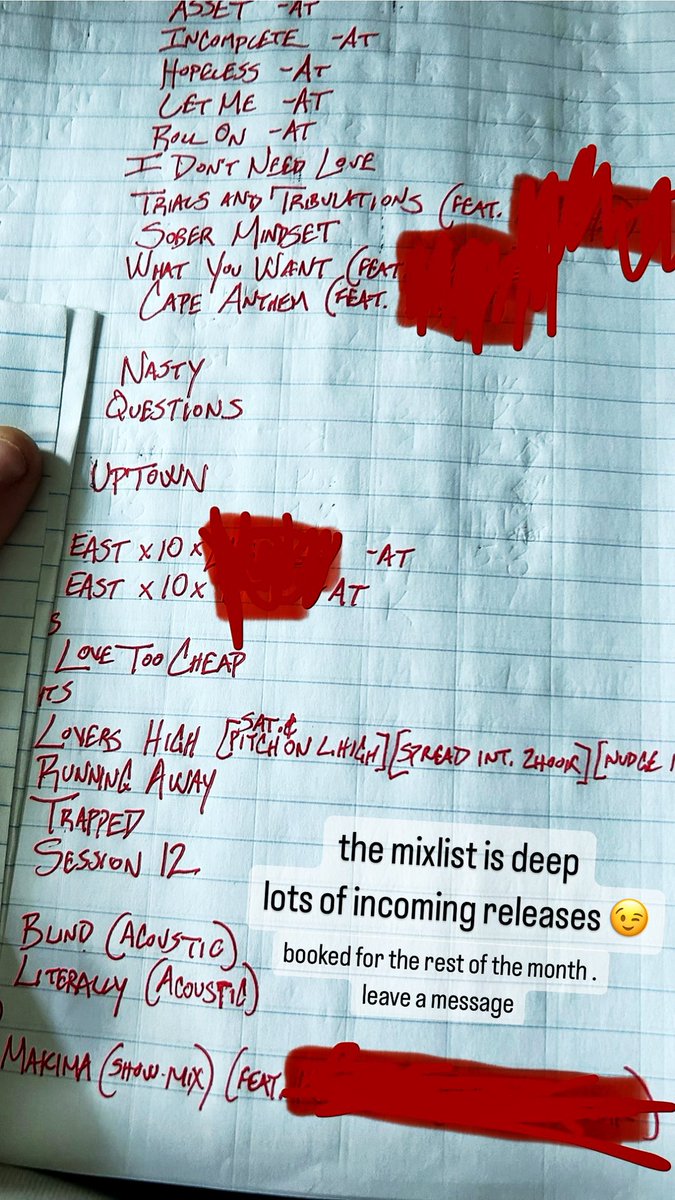 ASSET -AT
INCOMPLETE -AT
HOPELESS -AT
LET ME -AT
ROLL ON -AT
I DON'T NEED LOVE
TRIALS AND TRIBULATIONS (FEAT.
SOBER MINDSET
WHAT YOU WANT (FEAT
CAPE ANTHEM (FEAT.
NASTY
QUESTIONS
UPTOWN
EAST x 10 x -AT
EAST x 10 x AT
S
LOVE TOO CHEAP
TS
LOVERS HIGH [SAT. & PITCH ON L.HIGH] [SPREAD INT. 2HOOK] [NUDGE
RUNNING AWAY
TRAPPED
SESSION 12
the mixlist is deep
lots of incoming releases 😉
booked for the rest of the month .
leave a message
BLIND (ACOUSTIC)
LITERALLY (ACOUSTIC)
MAKIMA (SHOW-MIX) (FEAT. )